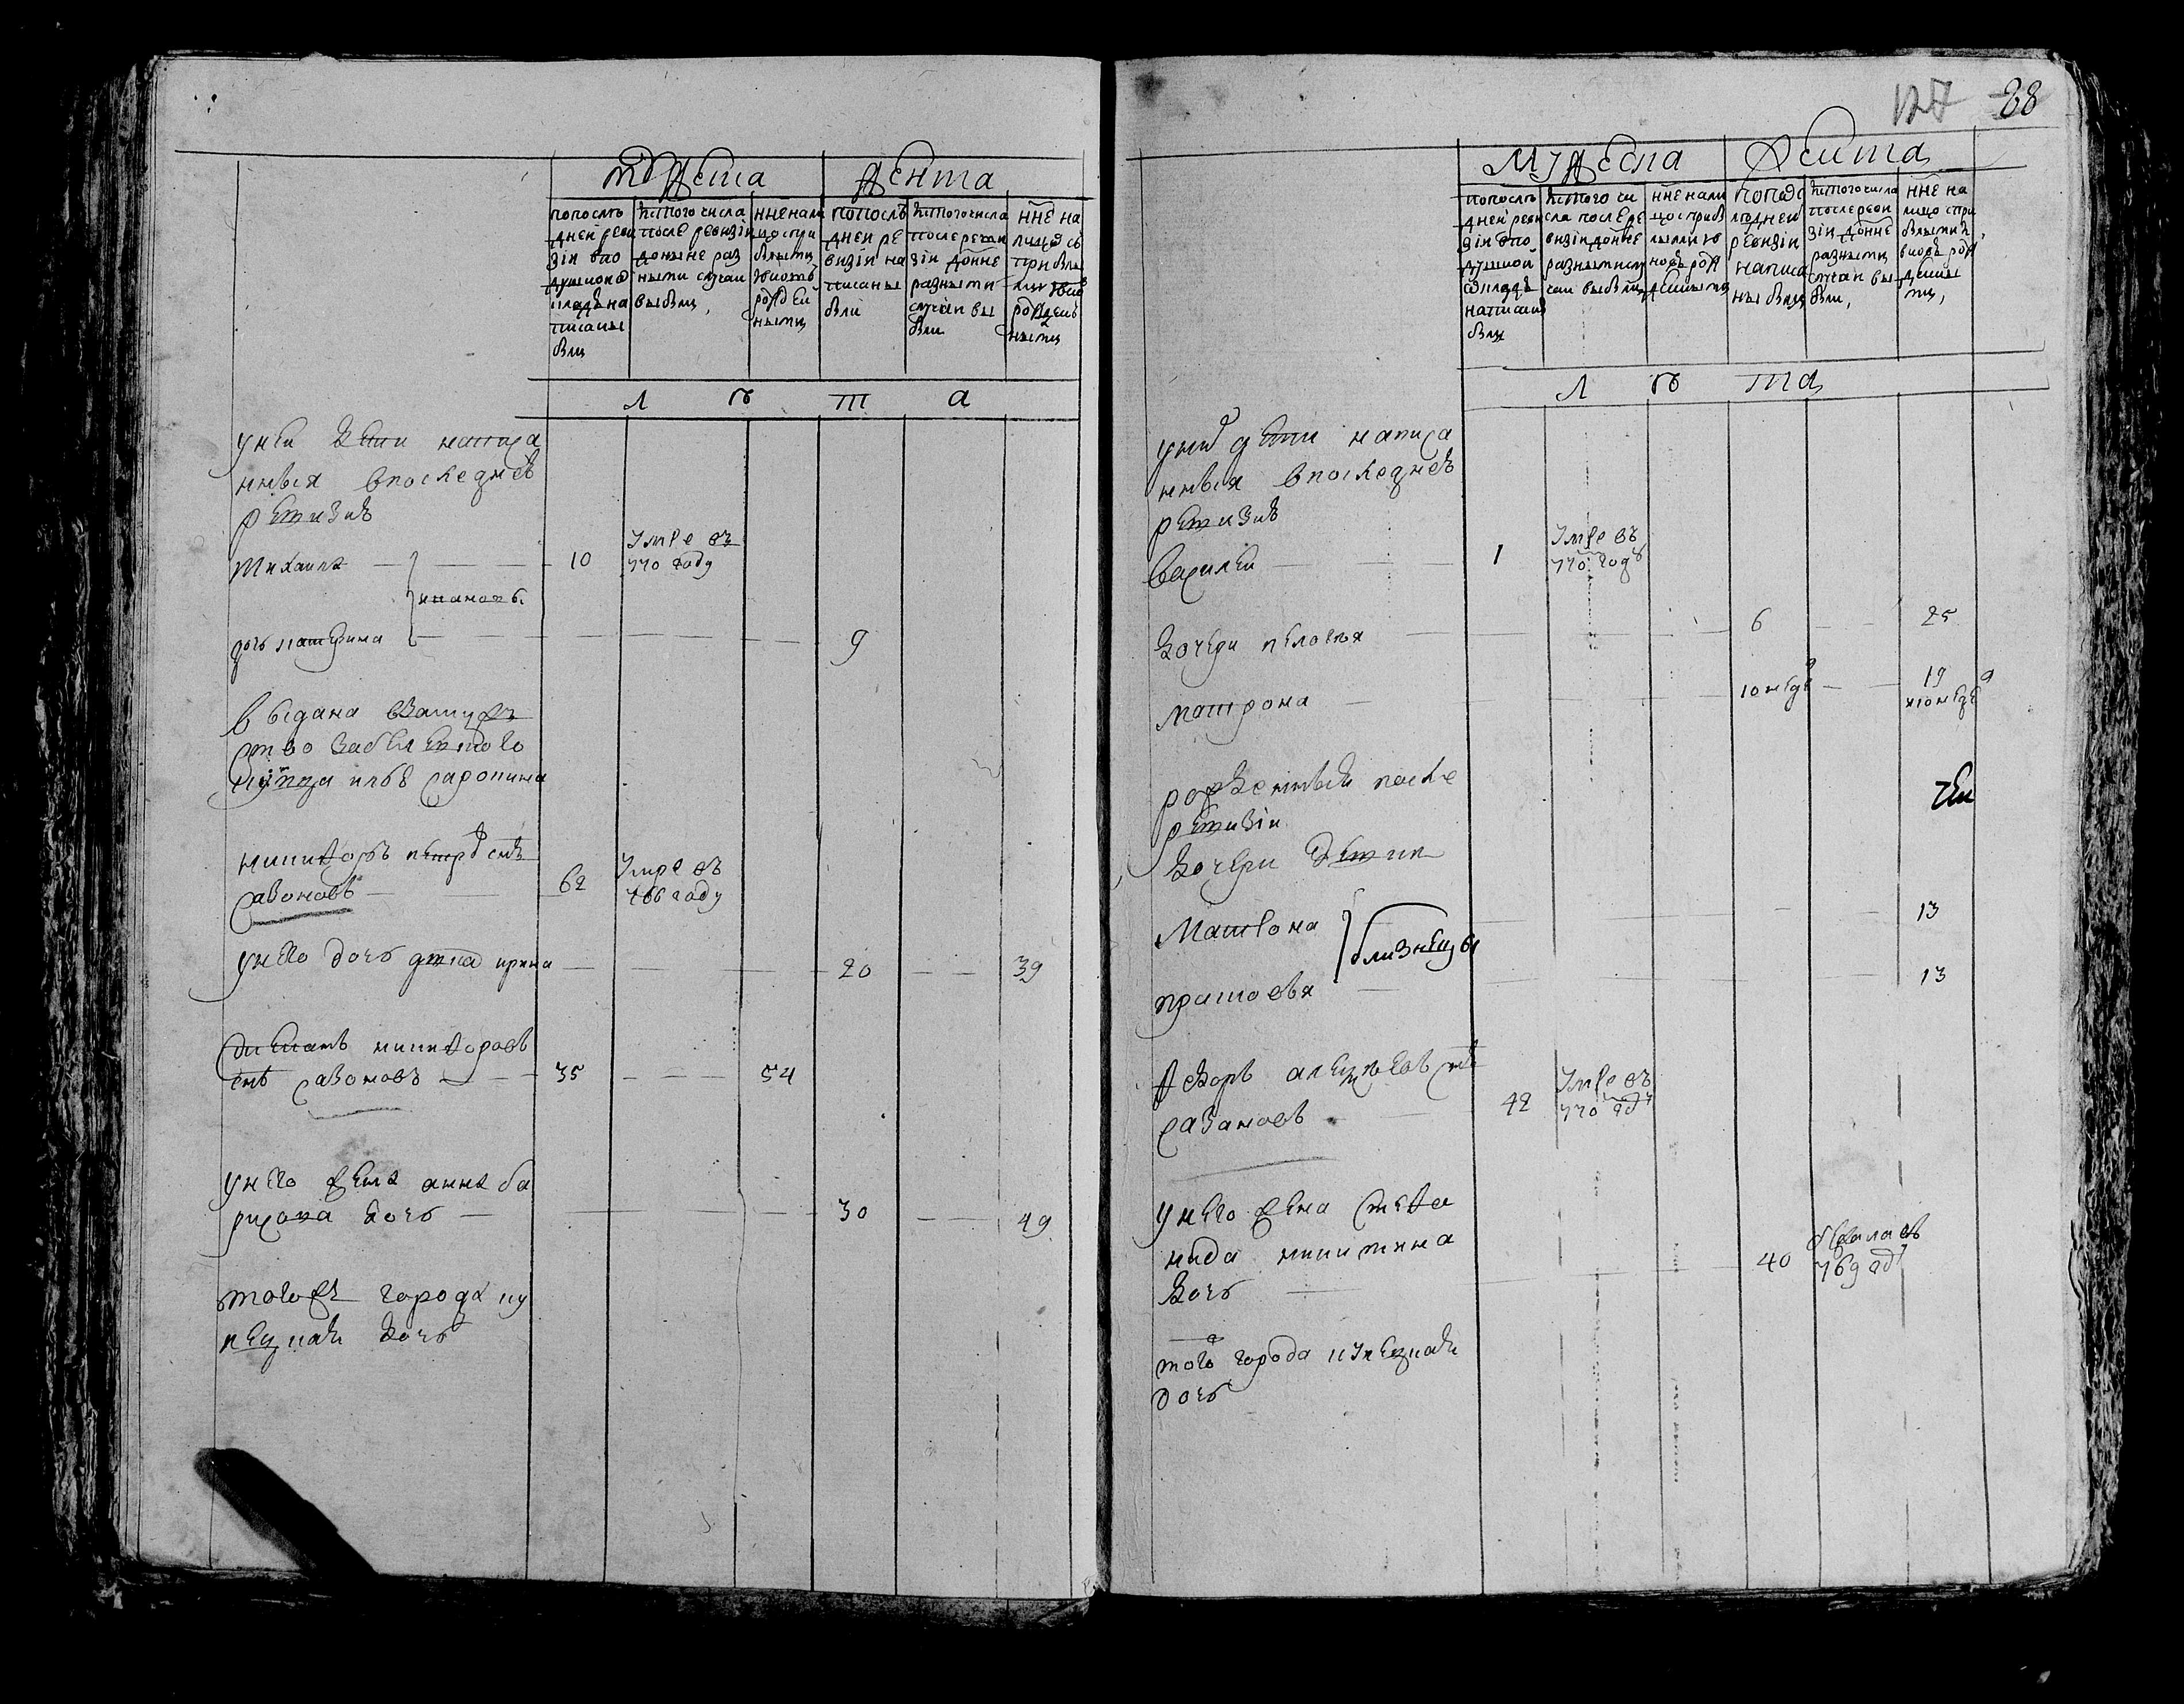 мужеска женска
по последней ревизіи в подушной оклад написаны были
ис того числа после ревизіи до ныне разными случаи выбыли
ныне на лицо с прибылыми и вновь рожденными
по последней ревизіи написаны были
ис того числа после ревизіи до ныне разными случаи выбыли
ныне на лицо с прибылыми и вновь рожденными
л ѣ т а
у ней дети написа
нныя в последней
ревизиі
Михаила 10 умре въ
770 году
ивановы
дочь катерина 9
выдана взамуж
ство
купца
никифоръ петровъ снъ
сазоновъ 62 умре въ
766 году
у него дочь девка ирина 20 39
никифоровъ
снъ сазоновъ 35 54
у него жена анна ба
рисова дочь 30 49
тогожъ города ку
пецкая дочь
127 88
мужеска женска
по последней ревизіи в подушной оклад написаны были
ис того числа после ревизіи до ныне разными случаи выбыли
ныне на лицо с прибылыми и вновь рожденными
по последней ревизіи написаны были
ис того числа после ревизіи до ныне разными случаи выбыли
ныне на лицо с прибылыми и вновь рожденными
л ѣ т а
у них дети написа
нныя в последней
ревизиі
василей 1 умре въ
770 годѣ
дочери пелагея 6 25
матрона 10 недѣ 19
и 10 недѣ
рожденныя после
ревизіи
дочери девки
Матрона 13
близнецы
прасковья 13
Ѳедоръ алексеевъ снъ
сазановъ 42 умре въ
770 году
у него жена степа
нида никитина
дочь 40 769 году
того города купецкая
дочь